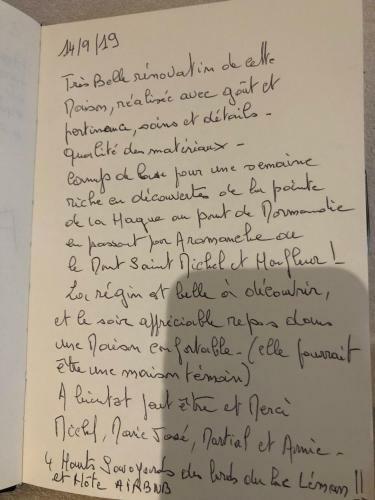 14/9/19
Très Belle rénovation de cette
Maison, réalisée avec goût et
pertinence, soins et détails -
qualité des matériaux -
Camp de base pour une semaine
riche en découvertes de la pointe
de la Hague au pont de Normandie
en passant par Aromanche ou
le Mont Saint Michel et Honfleur !
La région est belle à découvrir,
et le soir appréciable repos dans
une Maison confortable - (elle pourrait
être une maison témoin)
A bientôt peut être et Merci
Michel, Marie José, Martial et Annie -
4 Hauts Savoyards des bords du Lac Léman !!
et Hôte AIRBNB